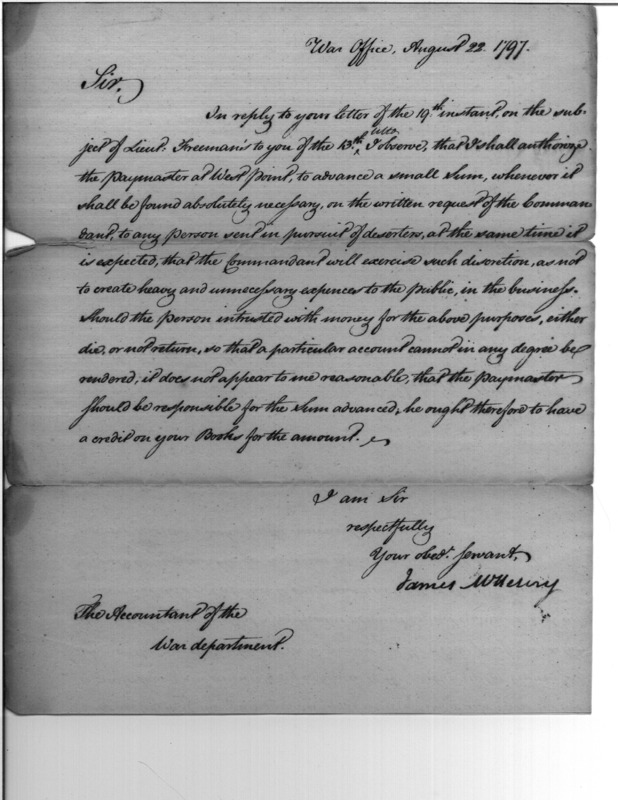 War Office, August 22. 1797.
Sir,
In reply to your letter of the 19th instant, on the sub-
ject of Lieut. Freeman's to you of the 13th Ulto. I observe, that I shall authorize
the paymaster at West Point, to advance a small Sum, whenever it
shall be found absolutely necessary, on the written request of the Comman
dant, to any person sent in pursuit of deserters, at the same time it
is expected, that the Commandant will exercise such discretion, as not
to create heavy and unnecessary expences to the public, in the business.
Should the person intrusted with money for the above purposes, either
die, or not return, so that a particular account cannot in any degree be
rendered, it does not appear to me reasonable, that the paymaster
should be responsible for the Sum advanced, he ought therefore to have
a credit on your Books for the amount.
I am Sir
respectfully
Your obedt. servant,
James McHenry
The Accountant of the
War department.